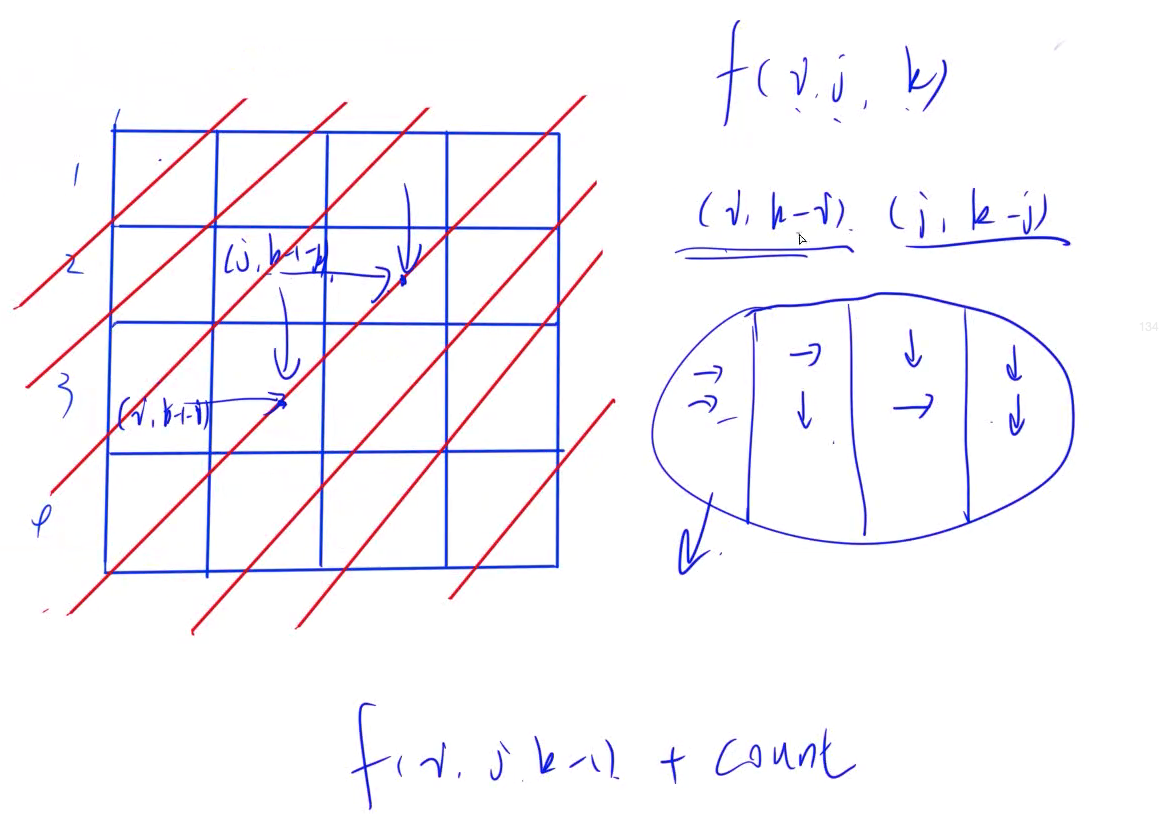 f(i, j, k)
(i, k-i) (j, k-j)
1
2
3
4
(j, k-1-j)
(i, k-1-i)
f(i, j, k-1) + count
134